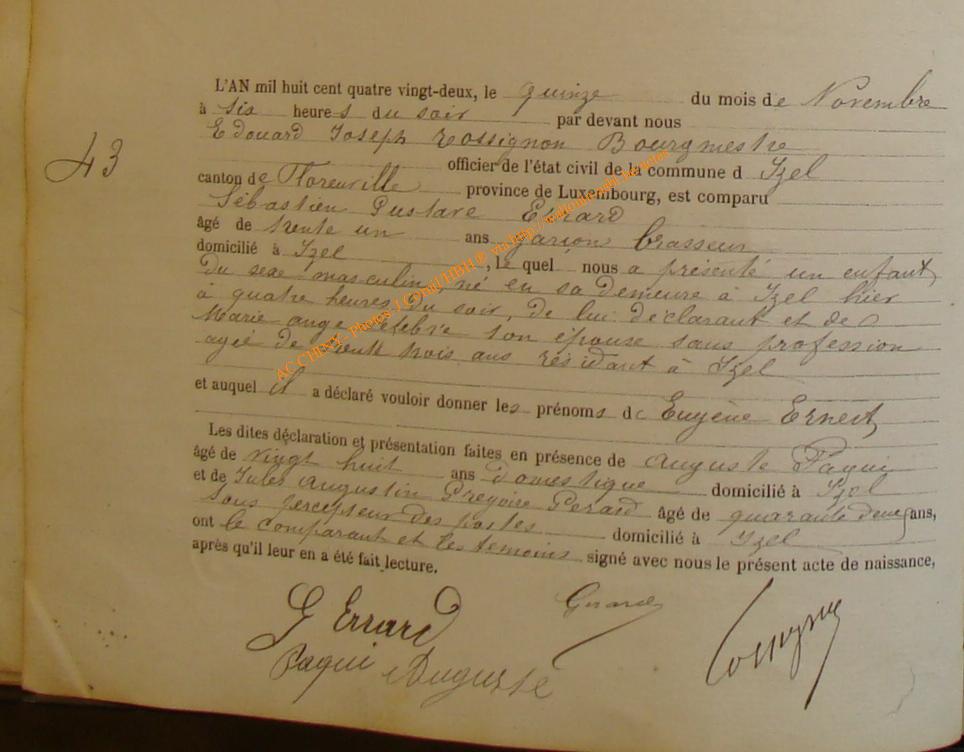 L'AN mil huit cent quatre vingt-deux, le quinze du mois de Novembre
à six heures du soir par devant nous
Edouard Joseph Rossignon Bourgmestre
43
officier de l'état civil de la commune d Izel
canton de Florenville province de Luxembourg, est comparu
Sébastien Gustave Errard
âgé de trente un ans garçon brasseur
domicilié à Izel, le quel nous a présenté un enfant
du sexe masculin né en sa demeure à Izel hier
à quatre heures du soir, de lui déclarant et de
Marie ange son épouse sans profession
agée de trente trois ans résidant à Izel
et auquel il a déclaré vouloir donner les prénoms de Eugène Ernest
Les dites déclaration et présentation faites en présence de Auguste Paqui
âgé de vingt huit ans domestique domicilié à Izel
et de Jules Augustin Grégoire Gérard âgé de quarante deux ans,
sous percepteur des postes domicilié à Izel
ont le comparant et les temoins signé avec nous le présent acte de naissance,
après qu'il leur en a été fait lecture.
G Errard
Gerard
Paqui Auguste
ACCHBGx - Photos J.Cornil HBH ® via http://